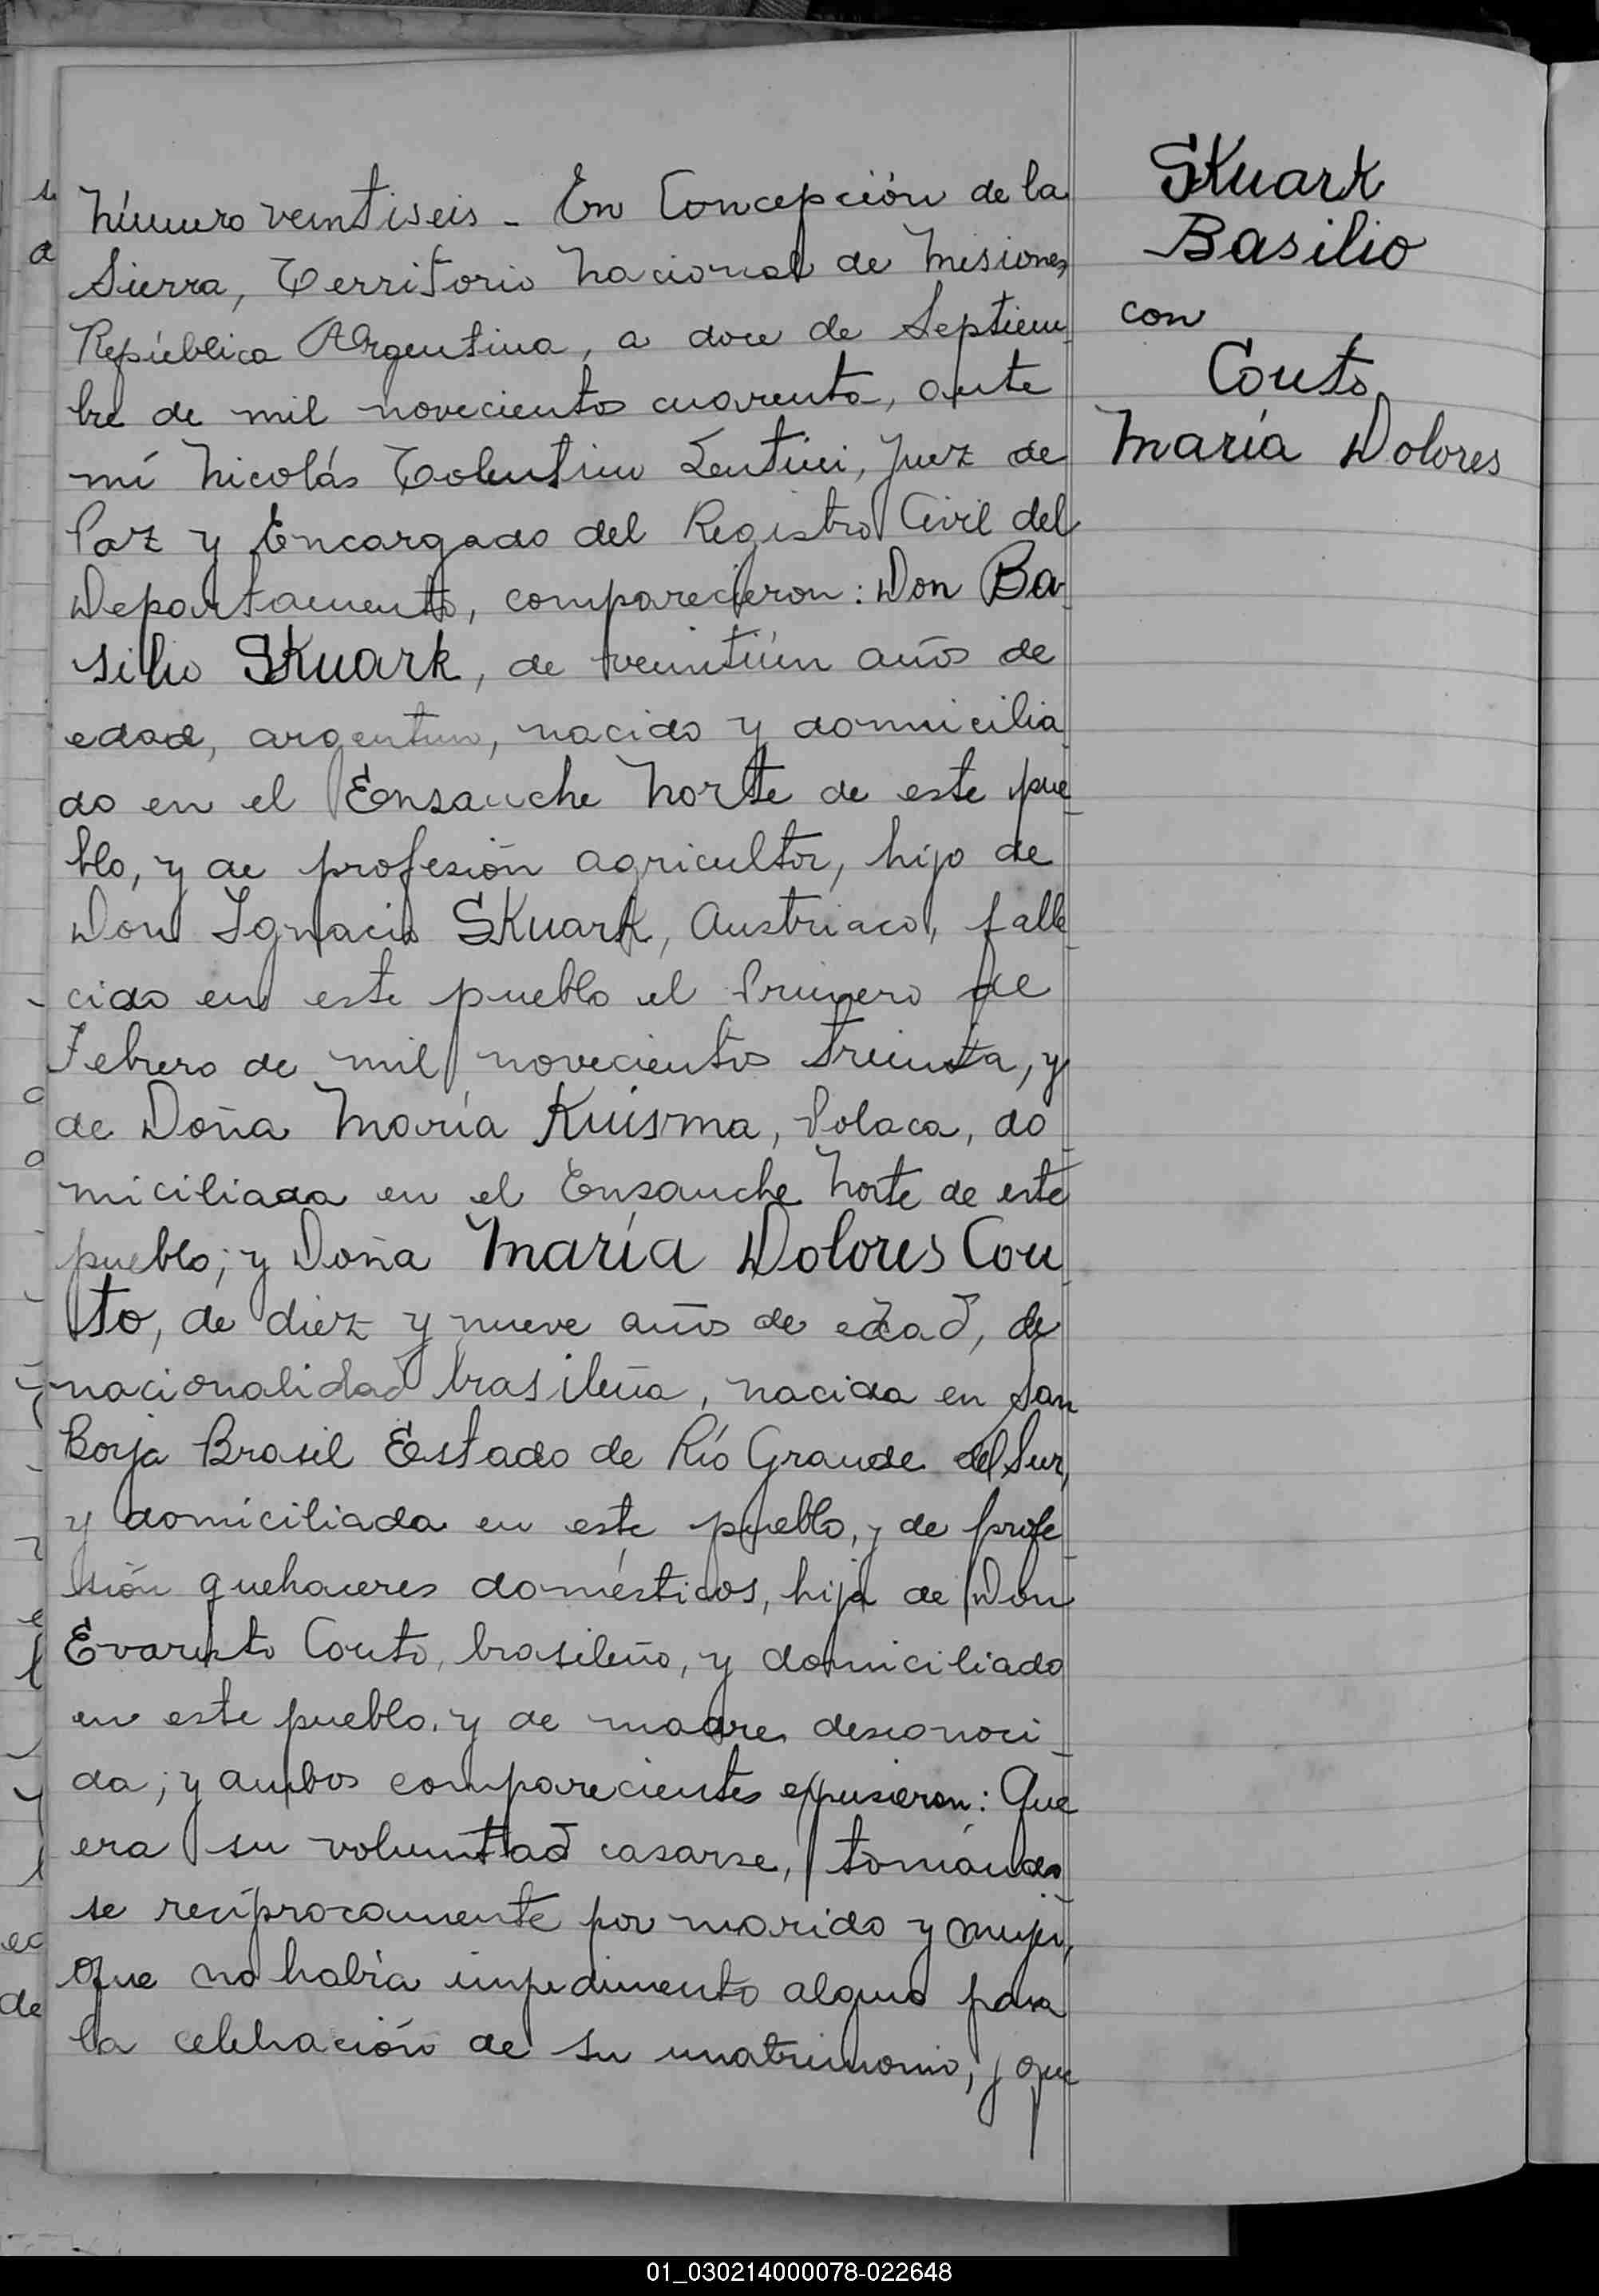 Número veintiseis - En Concepción de la
Sierra, Territorio Nacional de Misiones,
República Argentina, a doce de Septiem-
bre de mil novecientos cuarenta, ante
mí Nicolás Tolentino Lentini, Juez de
Paz y Encargado del Registro Civil del
Departamento, comparecieron: Don Ba-
silio SKuark, de veintiún años de
edad, argentino, nacido y domicilia-
do en el Ensanche Norte de este pue-
blo, y de profesión agricultor, hijo de
Don Ignacio SKuark, Austriaco, falle-
cido en este pueblo el Primero de
Febrero de mil novecientos treinta, y
de Doña María Kuisma, Polaca, do-
miciliada en el Ensanche Norte de este
pueblo; y Doña María Dolores Cou-
to, de diez y nueve años de edad, de
nacionalidad brasileña, nacida en San
Borja Brasil Estado de Río Grande del Sur,
y domiciliada en este pueblo, y de profe-
sión quehaceres domésticos, hija de Don
Evaristo Couto, brasileño, y domiciliado
en este pueblo, y de madre desconoci-
da; y ambos comparecientes expusieron: Que
era su voluntad casarse, tomándo-
se recíprocamente por marido y mujer,
que no había impedimento alguno para
la celebración de su matrimonio, y que
SKuark
Basilio
con
Couto
María Dolores
01_030214000078-022648